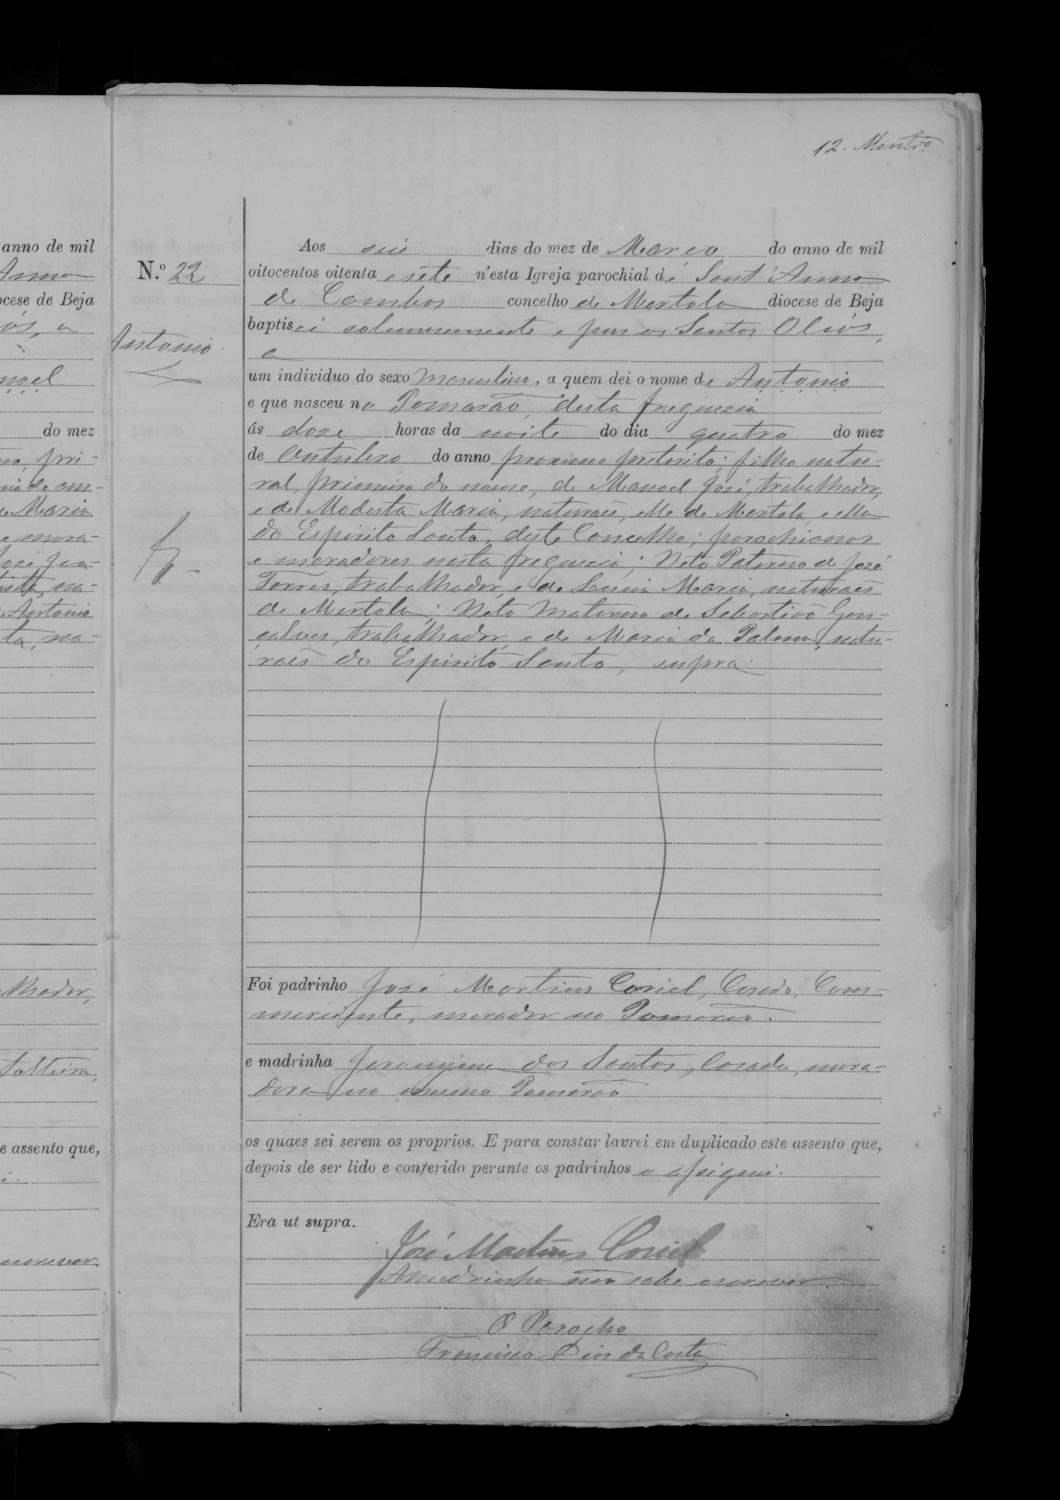 12.
anno de mil
Anna
ocese de Beja
noel
do mez
Maria
e mora-
Antonio
lhador,
e assento que,
escrever.
N.º 22
Antonio
Aos seis dias do mez de Março do anno de mil
oitocentos oitenta e sete n'esta Igreja parochial de Sant'Anna
de Cambas concelho de Mertola diocese de Beja
baptisei solemnemente e puz os Santos Oleos,
a
um individuo do sexo masculino, a quem dei o nome de Antonio
e que nasceu no Pomarão, desta freguezia
ás doze horas da noite do dia quatro do mez
de Outubro do anno proximo preterito; filho natu-
ral, primeiro do nome, de Manoel José, trabalhador,
e de Modesta Maria, naturaes, elle de Mertola, e ella
do Espirito Santo, deste Concelho; parochianos
e moradores nesta freguezia; Neto Paterno de José
Torres, trabalhador, e de Luzia Maria, naturaes
de Mertola; Neto Materno de Sebastião Gon-
çalves, trabalhador, e de Maria da Palma, natu-
raes do Espirito Santo, supra.
Foi padrinho José Martins Coriel, Casado, Com-
merciante, morador no Pomarão.
e madrinha Jeronyma dos Santos, Casada, mora-
dora no mesmo Pomarão
os quaes sei serem os proprios. E para constar lavrei em duplicado este assento que,
depois de ser lido e conferido perante os padrinhos o assignei.
Era ut supra.
José Martins Coriel
A madrinha não sabe escrever.
O Parocho
Francisco Dias da Costa